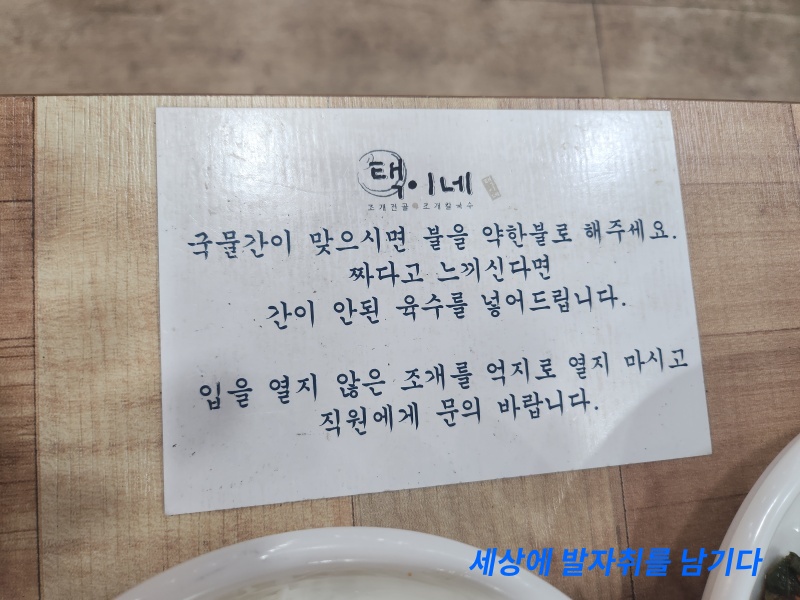 택이네
조개전골 조개칼국수
국물간이 맞으시면 불을 약한불로 해주세요.
짜다고 느끼신다면
간이 안된 육수를 넣어드립니다.
입을 열지 않은 조개를 억지로 열지 마시고
직원에게 문의 바랍니다.
세상에 발자취를 남기다